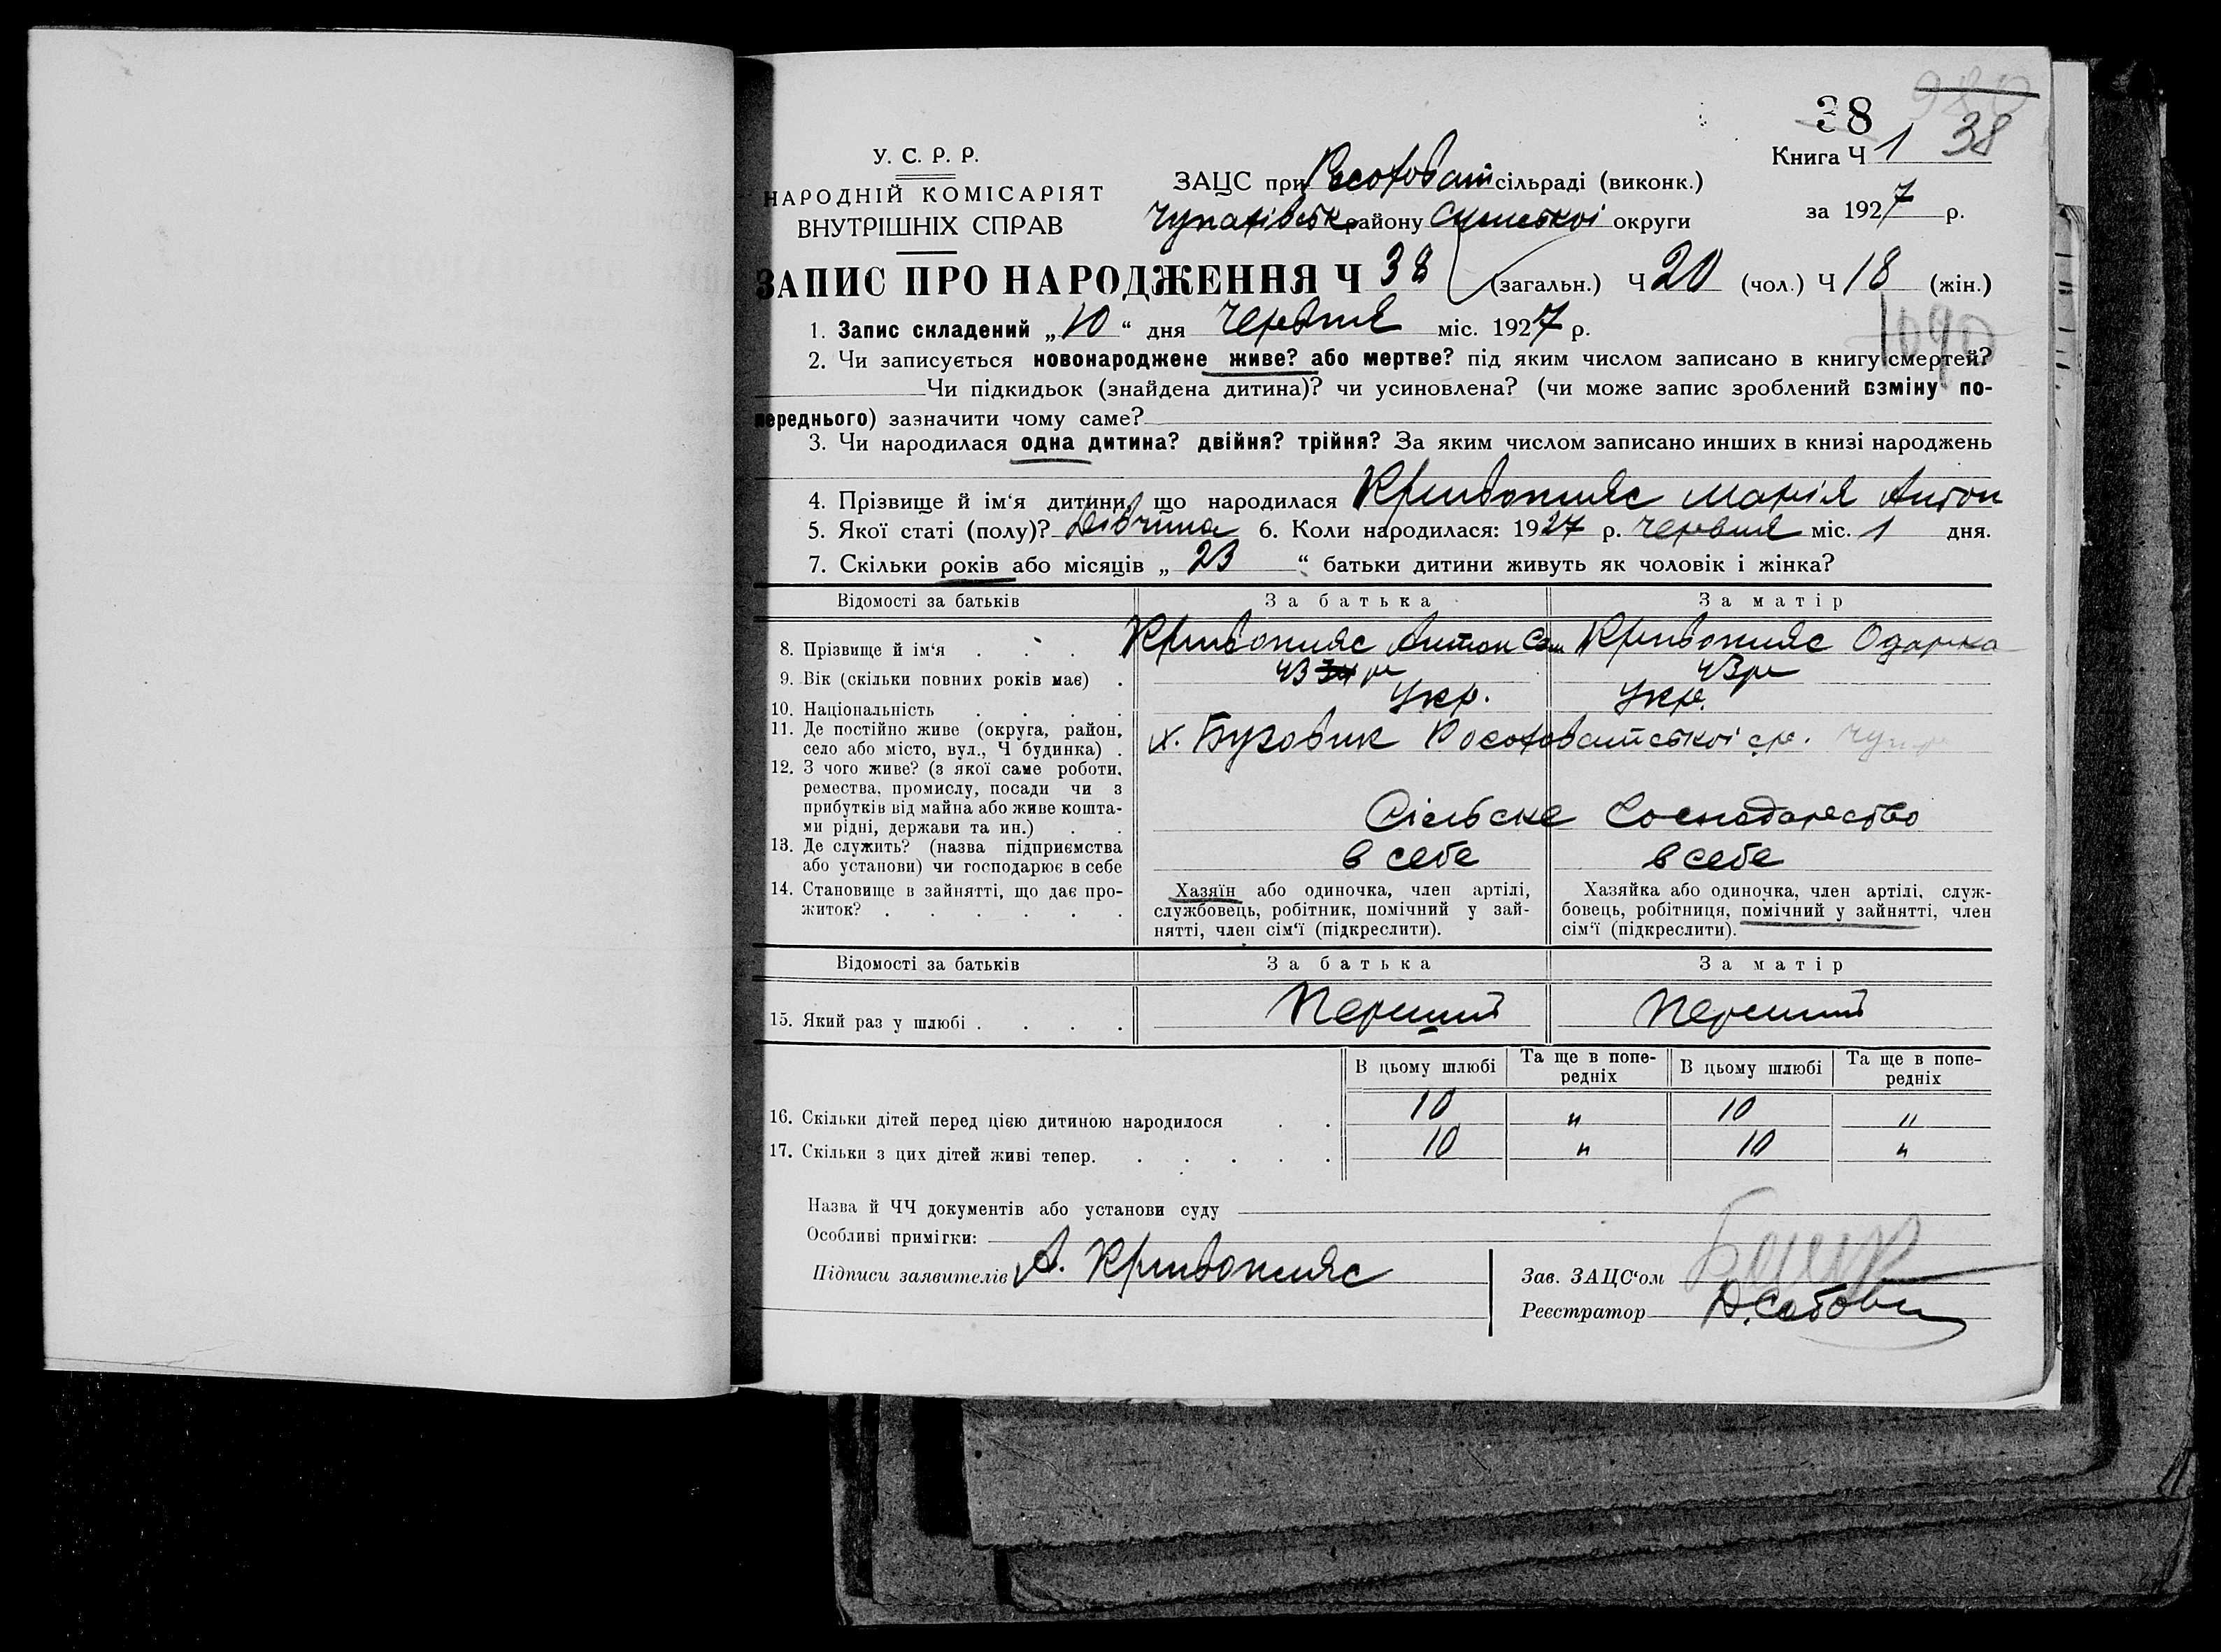 38
У. С. Р. Р.
НАРОДНІЙ КОМІСАРІЯТ
ВНУТРІШНІХ СПРАВ
Книга Ч 1 38
ЗАЦС при сільраді (виконк.)
району Сумської округи
за 1927 р.
ЗАПИС ПРО НАРОДЖЕННЯ Ч 38 (загальн.) Ч 20 (чол.) Ч 18 (жін.)
1. Запис складений „10“ дня Червня міс. 1927 р.
2. Чи записується новонароджене живе? або мертве? під яким числом записано в книгу смертей?
Чи підкидьок (знайдена дитина)? чи усиновлена? (чи може запис зроблений взміну по-
переднього) зазначити чому саме?
3. Чи народилася одна дитина? двійня? трійня? За яким числом записано инших в книзі народжень
4. Прізвище й ім‘я дитини, що народилася Кривошияс Марія Антон
5. Якої статі (полу)? Дівчина 6. Коли народилася: 1927 р. червня міс. 1 дня.
7. Скільки років або місяців „ 23 “ батьки дитини живуть як чоловік і жінка?
Відомості за батьків За батька За матір
8. Прізвище й ім‘я . . . Кривошияс Антон Сам Кривошияс Одарка
9. Вік (скільки повних років має) . 43 34 р 43 р
10. Національність . . . . Укр. Укр.
11. Де постійно живе (округа, район,
село або місто, вул., Ч будинка) . х. Бузовик ср.
12. З чого живе? (з якої саме роботи,
ремества, промислу, посади чи з
прибутків від майна або живе кошта-
ми рідні, держави та ин.) . . Сільске Господарство
13. Де служить? (назва підприємства
або установи) чи господарює в себе в себе в себе
14. Становище в зайнятті, що дає про-
житок? . . . . . .
Хазяїн або одиночка, член артілі,
службовець, робітник, помічний у зай-
нятті, член сім‘ї (підкреслити).
Хазяйка або одиночка, член артілі, служ-
бовець, робітниця, помічний у зайнятті, член
сім‘ї (підкреслити).
Відомості за батьків За батька За матір
15. Який раз у шлюбі . . . . Перший Перший
В цьому шлюбі Та ще в попе-
редніх В цьому шлюбі Та ще в попе-
редніх
16. Скільки дітей перед цією дитиною народилося . . 10 „ 10 „
17. Скільки з цих дітей живі тепер. . . . . . 10 „ 10 „
Назва й ЧЧ документів або установи суду
Особливі примітки:
Підписи заявителів А. Кривошияс
Зав. ЗАЦС‘ом
Реєстратор